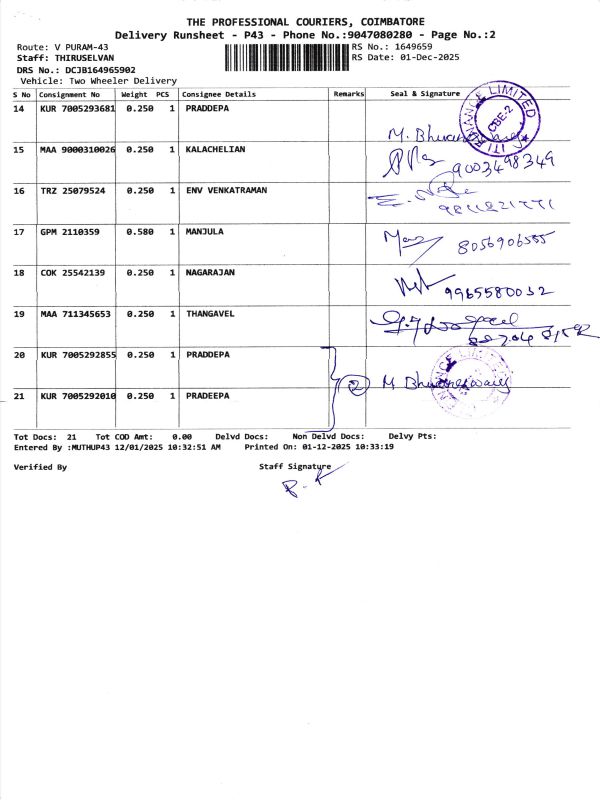 THE PROFESSIONAL COURIERS, COIMBATORE
Delivery Runsheet - P43 - Phone No.:9047080280 - Page No.:2
Route: V PURAM-43 RS No.: 1649659
Staff: THIRUSELVAN RS Date: 01-Dec-2025
DRS No.: DCJB164965902
Vehicle: Two Wheeler Delivery
S No Consignment No Weight PCS Consignee Details Remarks Seal & Signature
14 KUR 7005293681 0.250 1 PRADDEPA
FINANCE LIMITED CBE-2 ITI
M. Bhuvan
15 MAA 9000310026 0.250 1 KALACHELIAN
9003498349
16 TRZ 25079524 0.250 1 ENV VENKATRAMAN
17 GPM 2110359 0.580 1 MANJULA
8056906555
18 COK 25542139 0.250 1 NAGARAJAN
9965580032
19 MAA 711345653 0.250 1 THANGAVEL
20 KUR 7005292855 0.250 1 PRADDEPA
2 M Bhuvaneswari
21 KUR 7005292010 0.250 1 PRADEEPA
Tot Docs: 21 Tot COD Amt: 0.00 Delvd Docs: Non Delvd Docs: Delvy Pts:
Entered By :MUTHUP43 12/01/2025 10:32:51 AM Printed On: 01-12-2025 10:33:19
Verified By Staff Signature